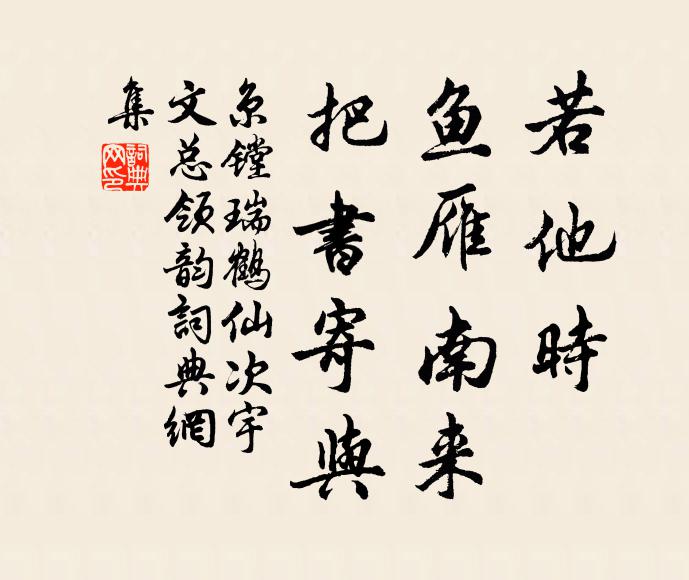 若他時
鱼雁南来
把書寄與
京镗瑞鹤仙次宇
文总领韵詞典網
集
詞典網印